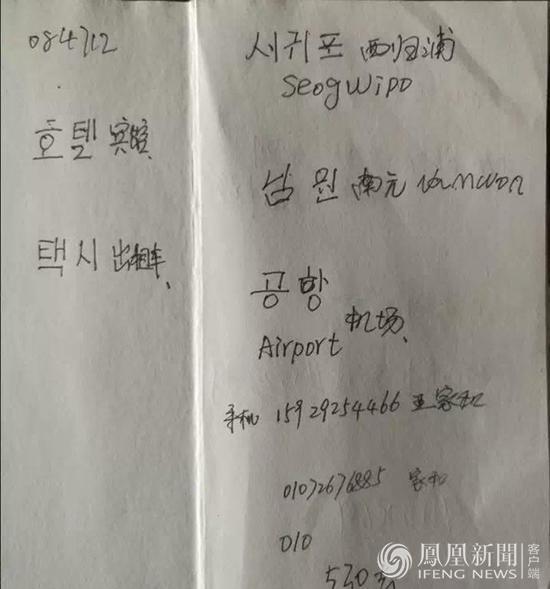 084712
호텔 宾馆
택시 出租车
서귀포 西归浦
Seogwipo
남원 南元 Namwon
공항
机场
Airport
手机 15929254466 王家和
01072676885 家和
010
凤凰新闻 客户端
IFENG NEWS